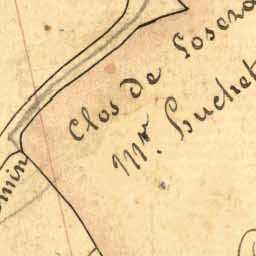 Clos de Losera
Mr. Luchet
min